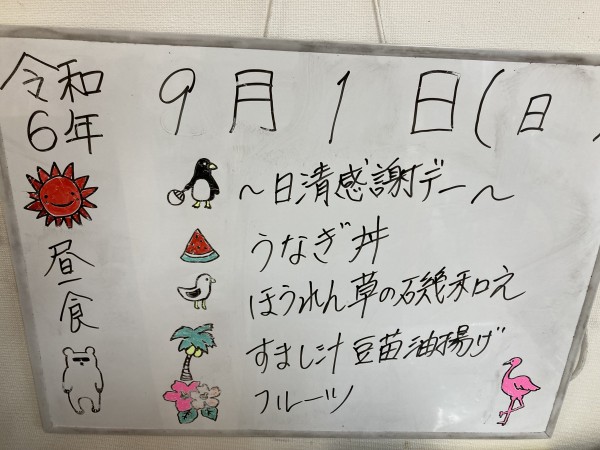 令和
6年
9月1日(日)
昼食
~日清感謝デー~
うなぎ丼
ほうれん草の磯和え
すまし汁 豆苗油揚げ
フルーツ